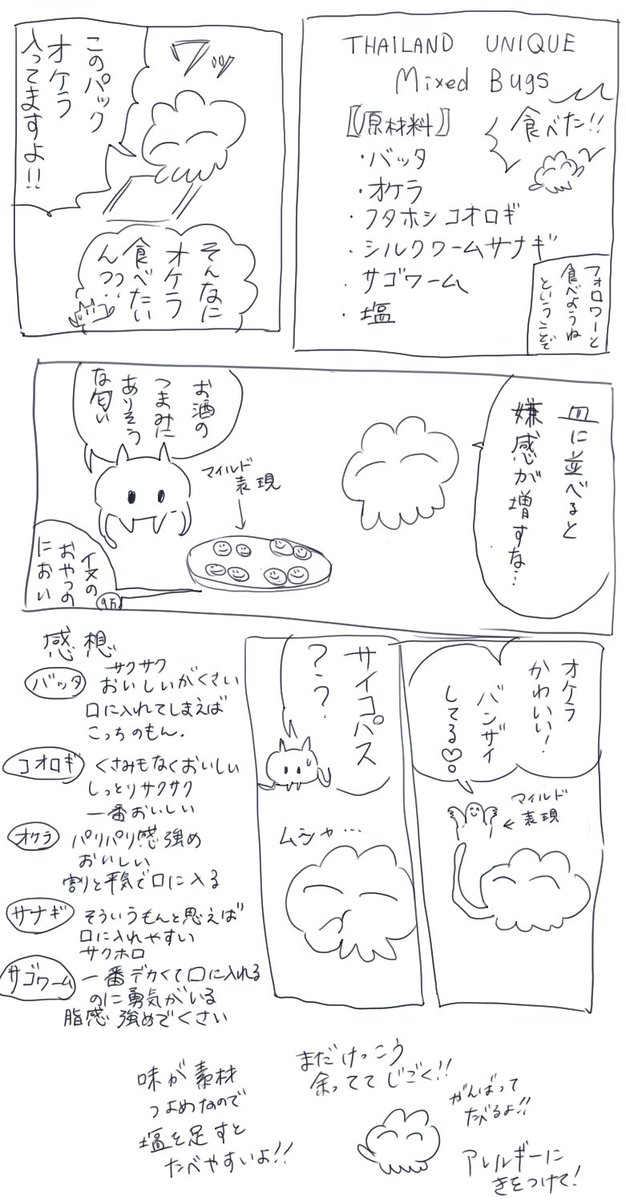 THAILAND UNIQUE
Mixed Bugs
〖原材料〗
・バッタ
・オケラ
・フタホシコオロギ
・シルクワームサナギ
・サゴワーム
・塩
食べた!!
フォロワーと
食べようね
ということで
ワッ
このパック
オケラ
入ってますよ!!
そんなに
オケラ
食べたい
んっ…
皿に並べると
嫌感が増すな…
マイルド
表現
お酒の
つまみに
ありそう
な匂い
犬の
おやつの
におい
オケラ
かわいい!
バンザイ
してる♡。
マイルド
表現
サイコパス
?う?
ムシャ…
感想
バッタ
サクサク
おいしいがくさい
口に入れてしまえば
こっちのもん.
コオロギ
くさみもなくおいしい
しっとりサクサク
一番おいしい
オケラ
パリパリ感強め
おいしい
割と平気で口に入る
サナギ
そういうもんと思えば
口に入れやすい
サクホロ
サゴワーム
一番デカくて口に入れる
のに勇気がいる
脂感強めでくさい
味が素材
つよめなので
塩を足すと
たべやすいよ!!
まだけっこう
余ってて じごく!!
がんばって
たべるよ!!
アレルギーに
きをつけて!